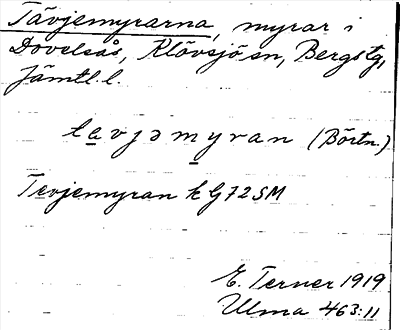 Tävjemyrarna, myrar i
Dovelsås, Klövsjö sn, Bergs tg,
Jämtl. l.
tavjəmyran (Börtn.)
Tevjemyran k G72SM
E. Terner 1919
Ulma 463:11